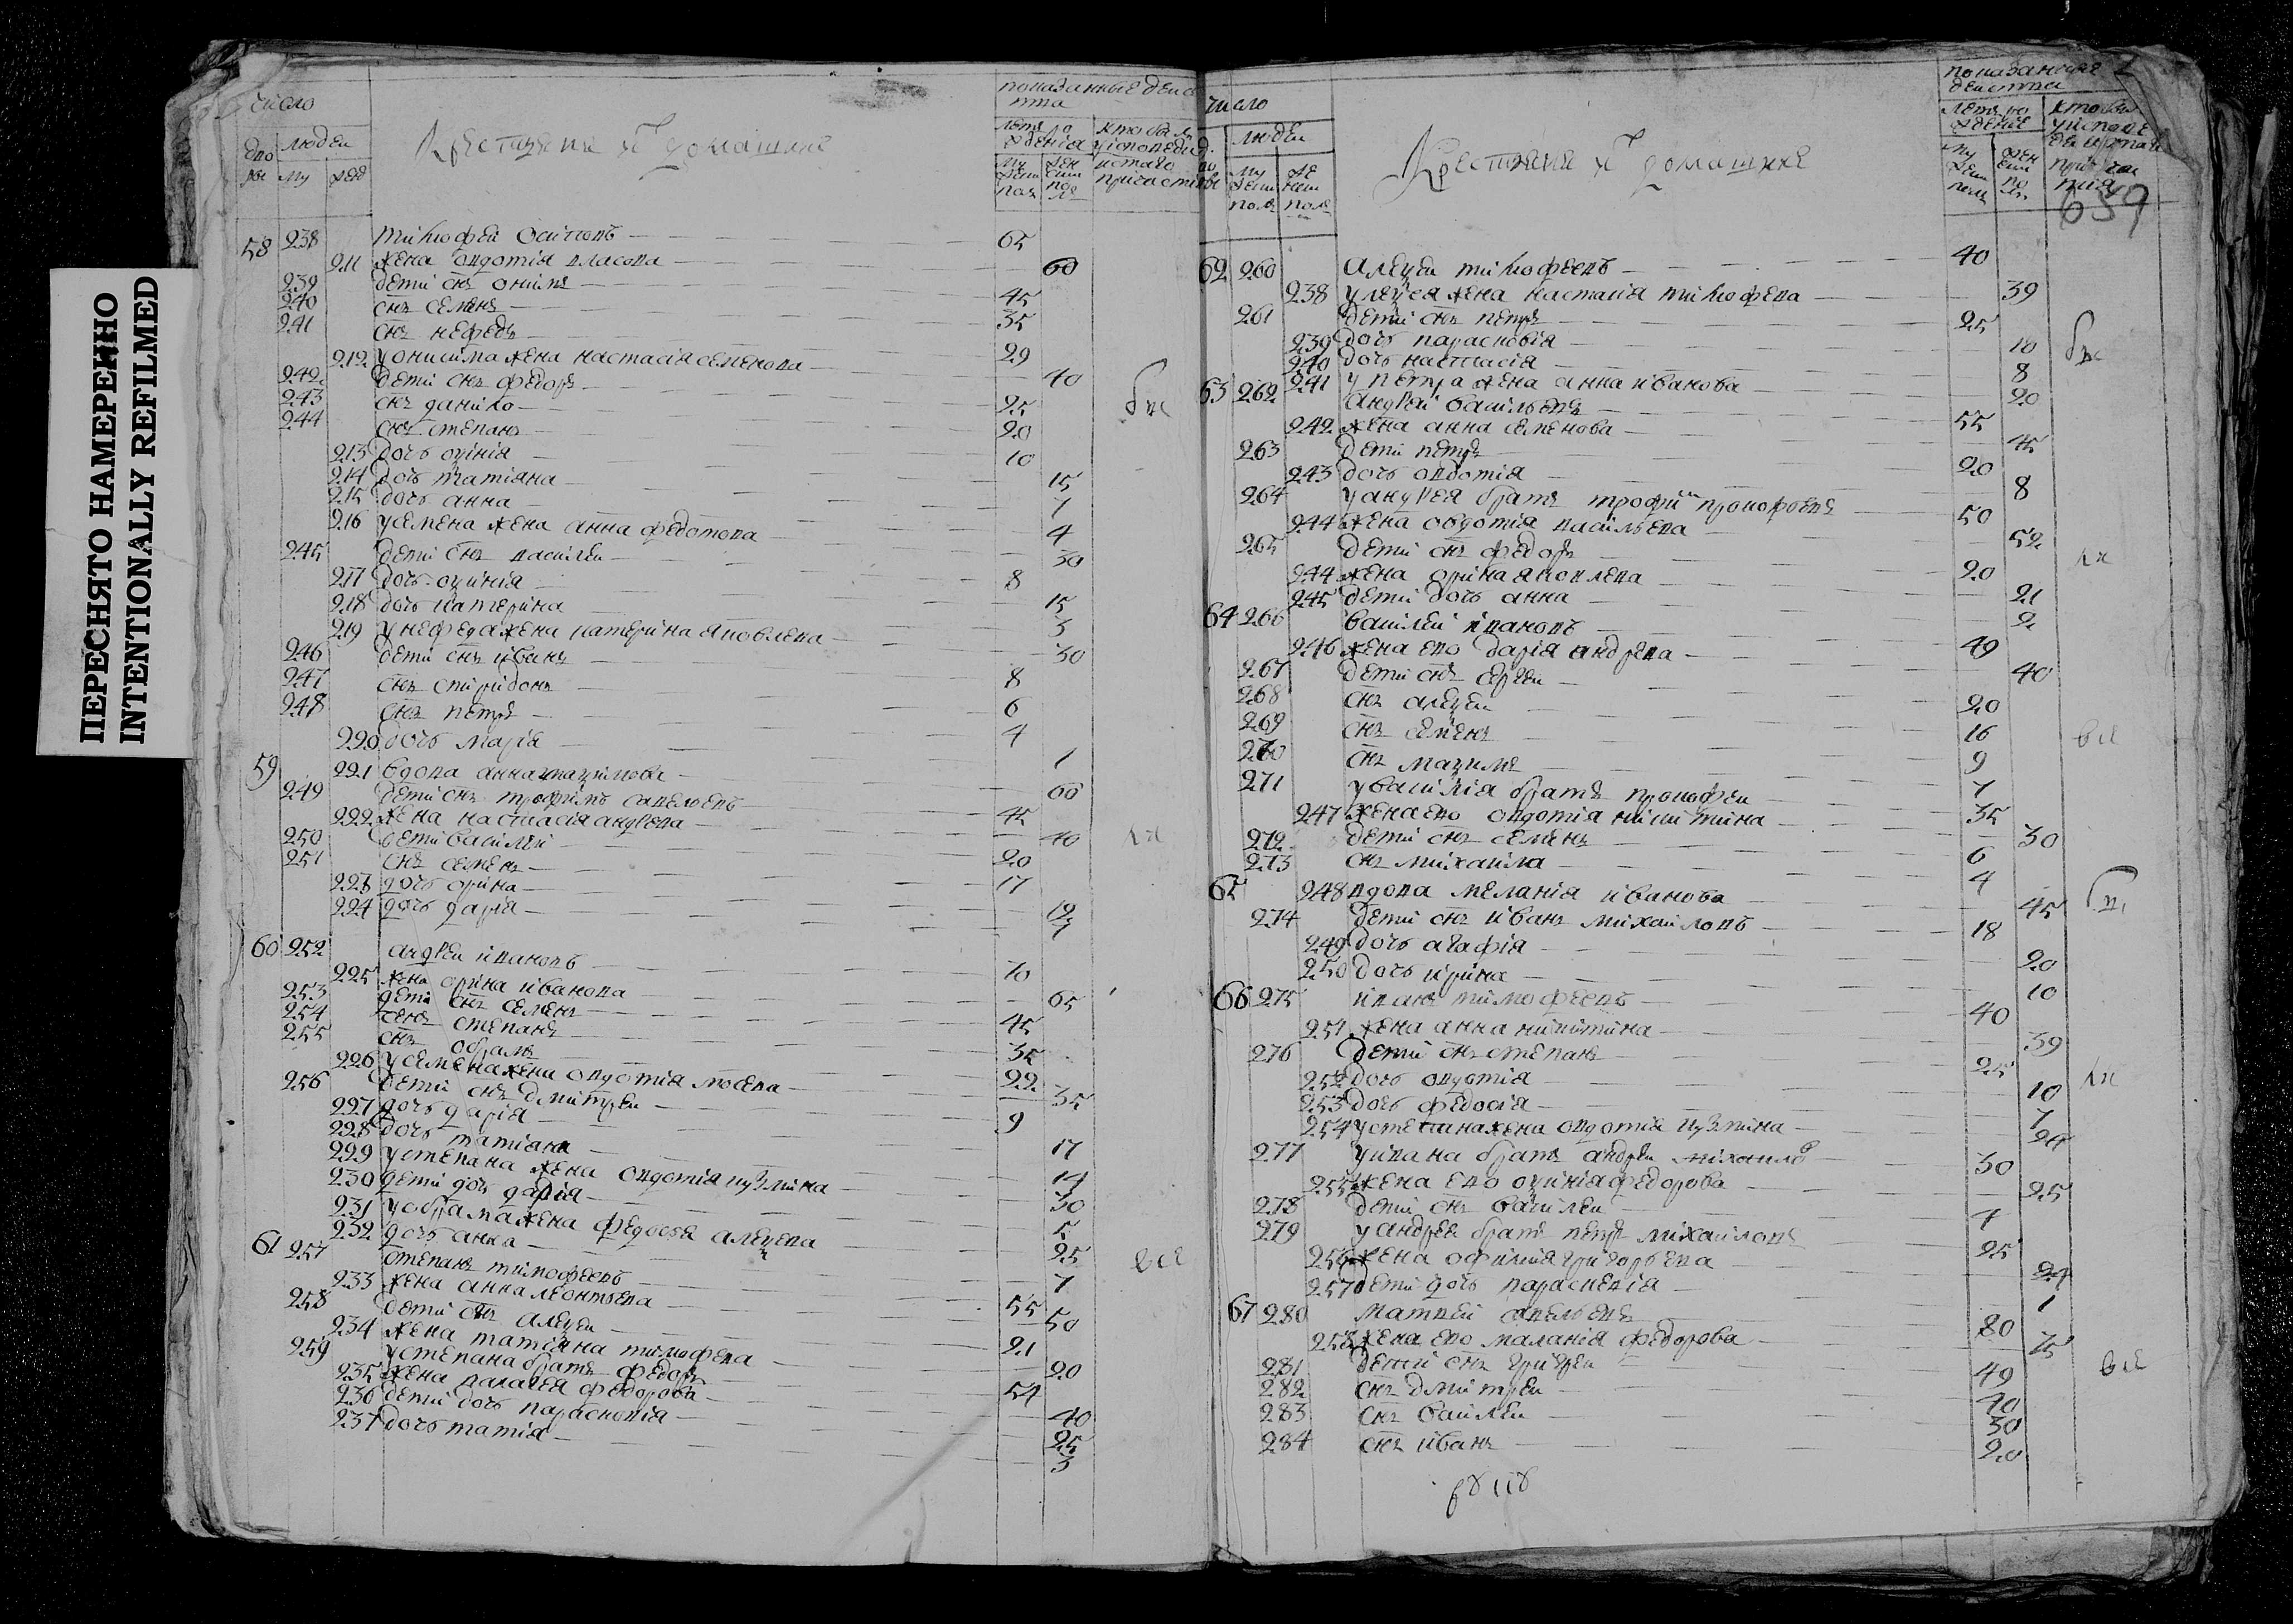 ПЕРЕСНЯТО НАМЕРЕННО
INTENTIONALLY REFILMED
число
показанные
люден
му жен
Крестьяне и домашние
58 238 тимофеи осипов 65
211 жена овдотия власова 60
239 дети снъ онисим 45
240 снъ семенъ 35
241 снъ нефедъ 29
212 у онисима жена настасия семенова 40
242 дети снъ федоръ 25
243 снъ данило 20
244 снъ степанъ 10
213 дочь 15
214 дочь татияна 1
215 дочь анна 4
216 у семена жена анна федотова 30
245 дети снъ василеи 8
217 дочь 15
218 дочь катерина 3
219 у нефеда жена катерина яковлева 30
246 дети снъ иванъ 8
247 снъ спиридонъ 6
248 снъ петръ 4
220 дочь мария 1
59 221 вдова анна 60
249 дети снъ трофимъ савельевъ 45
222 жена настасия андреева 40
250 дети василеи 20
251 снъ семенъ 17
223 дочь орина 12
224 дочь дария 7
60 252 андреи ивановъ 70
225 жена орина иванова 65
253 дети снъ семенъ 45
254 снъ степанъ 35
255 снъ обрамъ 22
226 у семена жена овдотия 35
256 дети снъ дмитреи 9
227 дочь дария 17
228 дочь татияна 14
229 у степана жена овдотия кузмина 30
230 дети дочь дария 5
231 у обрама жена федосья 25
232 дочь анна 7
61 257 степанъ тимофеевъ 55
233 жена анна леонтьева 50
258 дети снъ алеѯеи 21
234 жена татияна тимофеева 20
259 у степана братъ федоръ 54
235 жена палагея федорова 40
236 дети дочь парасковия 25
237 дочь татия 3
число
показанные
люден
Крестьяне и домашние
659
62 260 алеѯеи тимофеевъ 40
238 у алеѯея жена настасия тимофеева 39
261 дети снъ петръ 25
239 дочь парасковия 10
240 дочь настасия 8
241 у петра жена анна иванова 20
63 262 андреи васильевъ 55
242 жена анна семенова 45
263 дети петръ 20
243 дочь овдотия 8
264 у андрея братъ трофим прокофьевъ 50
244 жена овдотия васильева 52
265 дети снъ федоръ 20
244 жена орина яковлева 21
245 дети дочь анна 2
64 266 василеи ивановъ 49
246 жена ево дария андреева 40
267 дети снъ сергеи 20
268 снъ алеѯеи 16
269 снъ семенъ 9
270 снъ маѯимъ 7
271 у василия братъ прокофеи 35
247 жена ево овдотия никитина 30
272 дети снъ семенъ 6
273 снъ михаила 4
65 248 вдова мелания иванова 45
274 дети снъ иванъ михаиловъ 18
249 дочь агафия 20
250 дочь ирина 10
66 275 иванъ тимофеевъ 40
251 жена анна никитина 39
276 дети снъ степанъ 25
252 дочь овдотия 10
253 дочь федосия 7
254 у степана жена овдотия кузмина
277 у ивана братъ андреи михаилов 30
255 жена ево федорова 25
278 дети снъ василеи 7
279 у андрея братъ петръ михаиловъ 25
256 жена офимия григорьева 24
257 дети дочь парасковия 1
67 280 матвеи савельевъ 80
258 жена ево малания федорова 75
281 дети снъ григреи 49
282 снъ дмитреи 40
283 снъ василеи 30
284 снъ иванъ 20